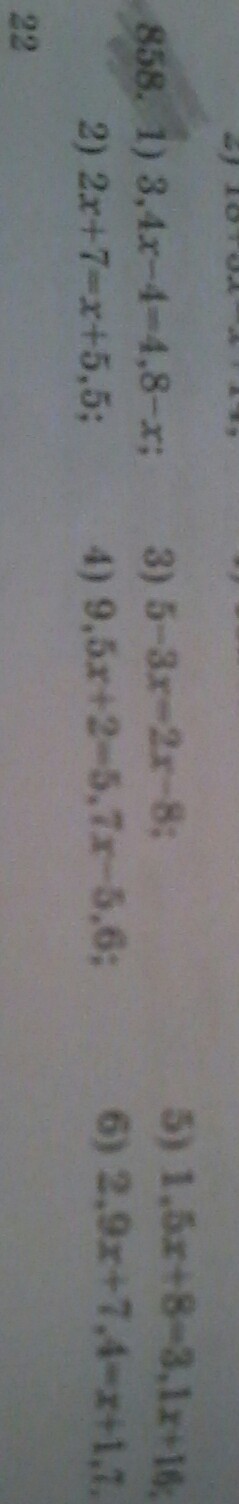 858. 1) 3,4x-4=4,8-x; 3) 5-3x=2x-8; 5) 1,5x+8=3,1x+16;
2) 2x+7=x+5,5; 4) 9,5x+2=5,7x-5,6; 6) 2,9x+7,4=x+1,7.
22